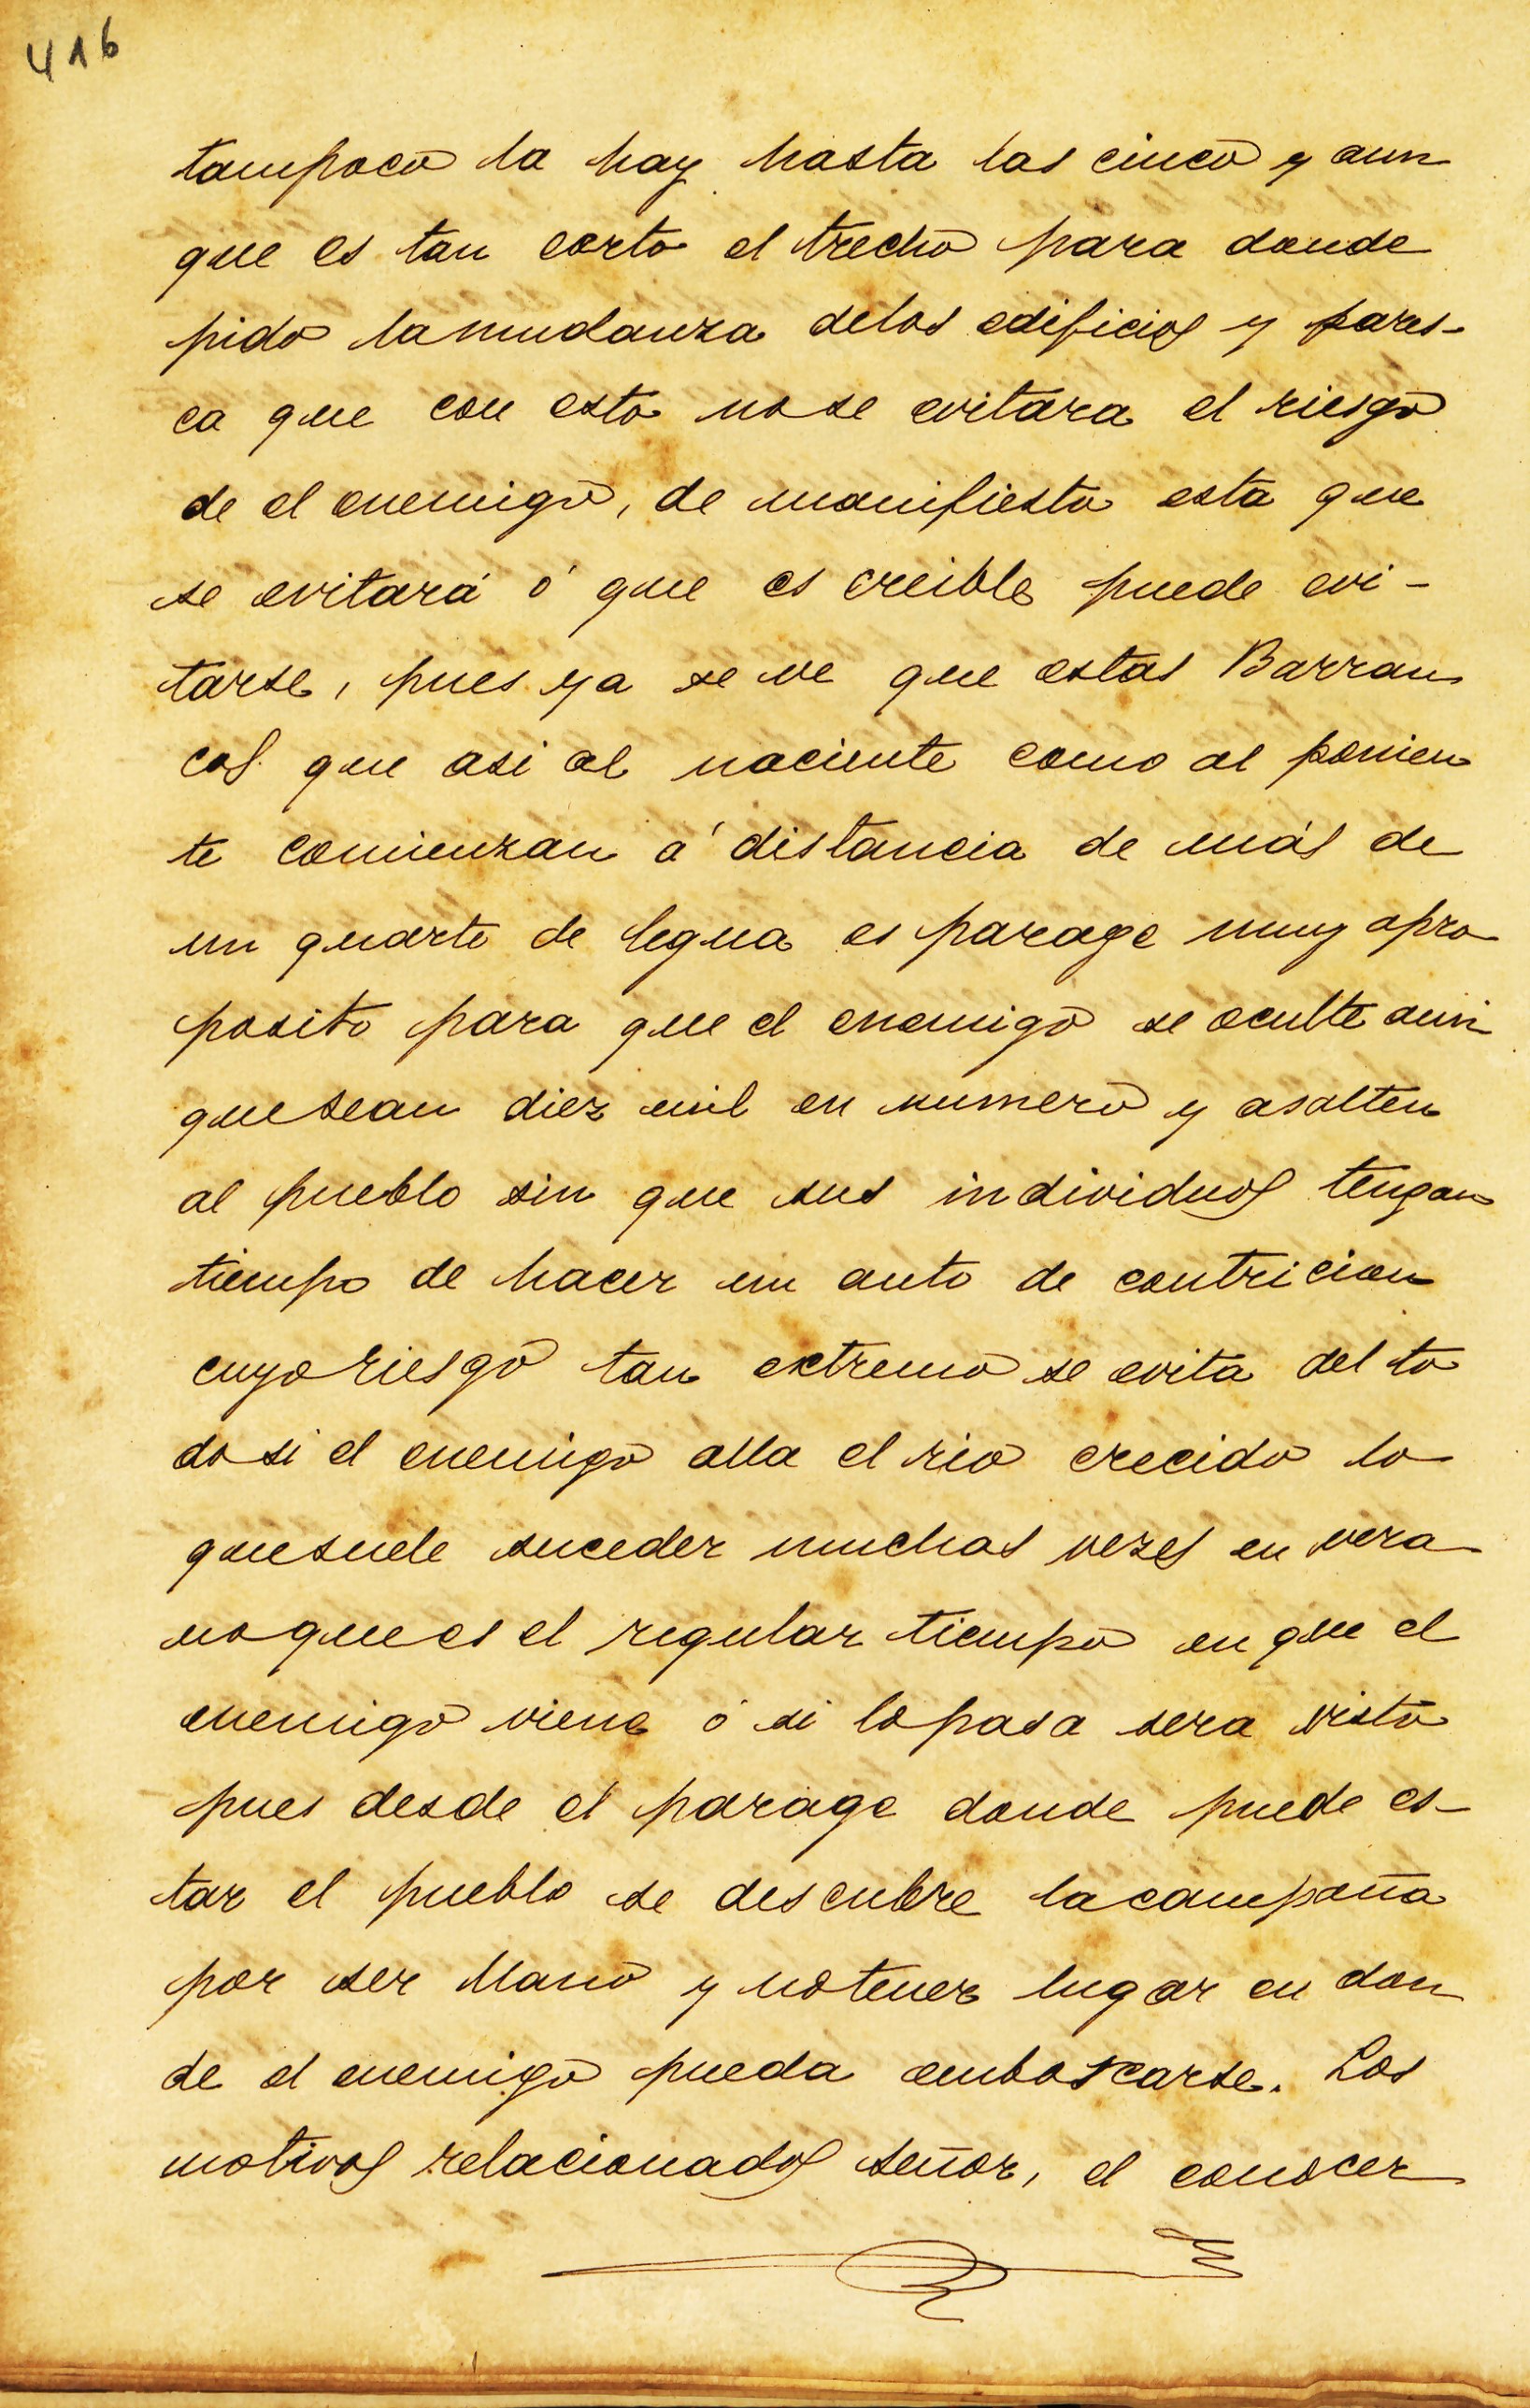 416
tampoco la hay hasta las cinco y aun
que es tan corto el trecho para donde
pido lamudanza delos edificios y pares-
ca que con esto nose evitara el riesgo
de el enemigo, de manifiesto esta que
se evitará ó que es creible puede evi-
tarse, pues ya se ve que estas Barran
cos que asi al naciente como al ponien
te comienzan á distancia de más de
un quarto de legua es parage muy apro
posito para que el enemigo se oculte aun
quesean diez mil en numero y asalten
al pueblo sin que sus individuos tengan
tiempo de hacer un auto de contricion
cuyo riesgo tan extremo se evita del to
do si el enemigo alla el rio crecido lo
quesuele suceder muchas vezes en vera
no que es el regular tiempo en que el
enemigo viene ó si lo pasa sera visto
pues desde el parage donde puede es-
tar el pueblo se descubre lacampaña
por ser llano y notener lugar en don
de el enemigo pueda emboscarse. Los
motivos relacionados señor, el conocer